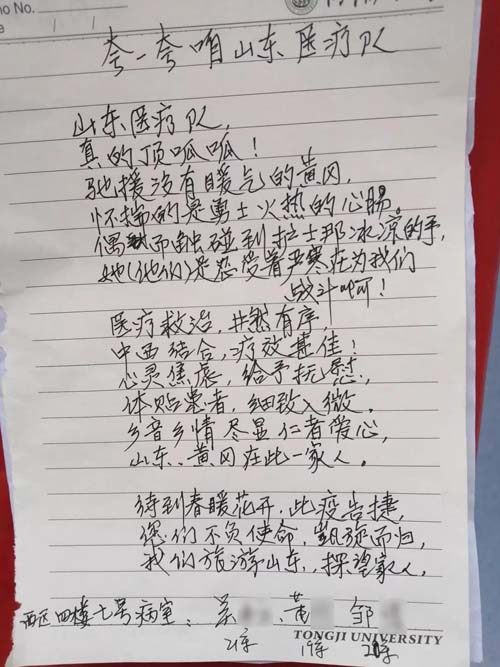 No.
夸一夸咱山东医疗队
山东医疗队,
真的顶呱呱!
驰援没有暖气的黄冈,
怀揣的是勇士火热的心肠。
偶而触碰到拉士那冰凉的手,
她(他们)是忍受着严寒在为我们
战斗啊!
医疗救治,井然有序,
中西结合,疗效甚佳!
心灵焦虑,给予抚慰,
体贴患者,细致入微。
乡音乡情尽显仁者爱心,
山东、黄冈在此一家人。
待到春暖花开,此疫告捷,
您们不负使命,凯旋而归,
我们旅游山东,探望家人。
西区四楼七号病室: 吴 、黄 邹
21床 19床 20床
TONGJI UNIVERSITY